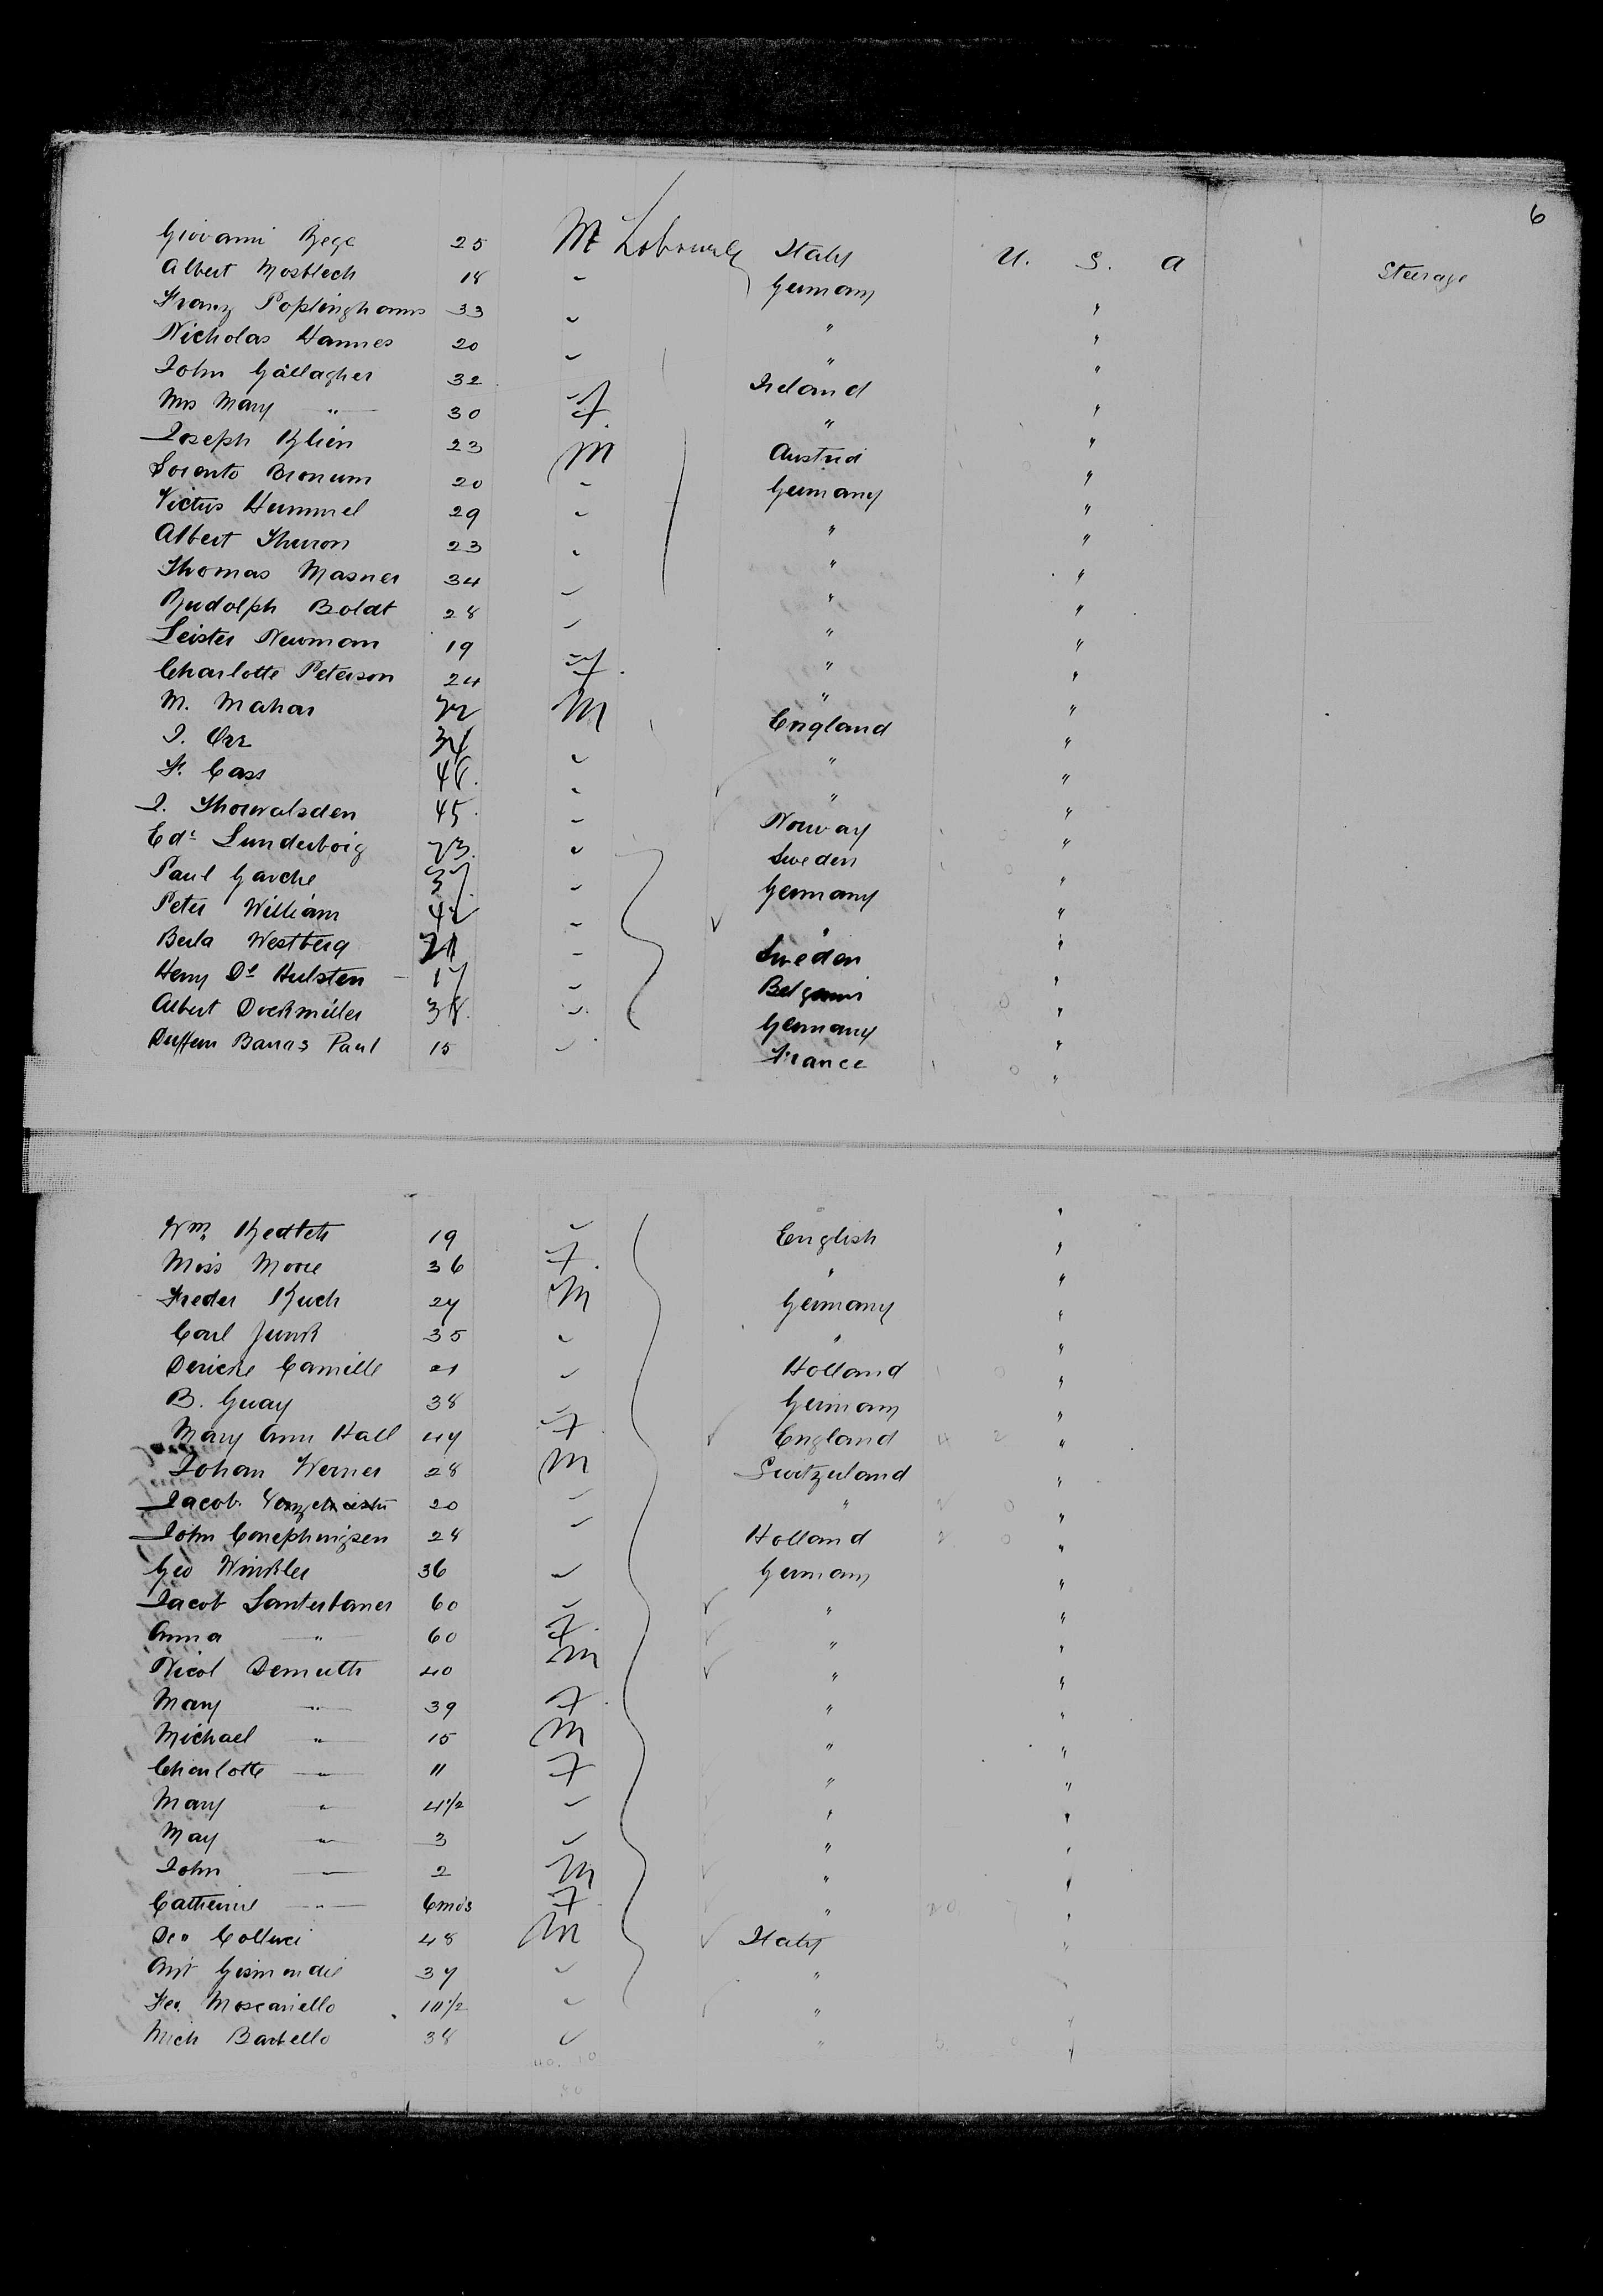 6
Giovanni Rege 25 M Labourer Italy U. S. A Steerage
Albert Mosblech 18 " Germany "
Franz Poplinghaus 33 " " "
Nicholas Hannes 20 " " "
John Gallagher 32 " Ireland "
Mrs Mary " 30 F. " "
Joseph Klien 23 M Austria "
Sorento Bronum 20 " Germany "
Victus Hummel 29 " " "
Albert Thuron 23 " " "
Thomas Masner 34 " " "
Rudolph Boldt 28 " " "
Leister Newman 19 " " "
Charlotte Peterson 24 F. " "
M. Mahar 32 M England "
J. Orr 34 " " "
F. Cass 48. " " "
J. Thorwalsden 45. " Norway "
Edd Lunderboig 23. " Sweden "
Paul Garche 37. " Germany "
Peter William 42 " " "
Berla Westberg 21 " Sweden "
Heny De Hulsten 17 " Belgium "
Albert Dockmüller 38. " Germany "
Barras Paul 15 " France "
Wm 19 " English "
Miss Moore 36 F. " "
Freder Kuch 27 M Germany "
Carl Junk 35 " " "
Dericke Camille 21 " Holland "
B. Guay 38 " Germany "
Mary Ann Hall 47 F. England "
Johan Werner 28 M Switzerland "
Jacob 20 " " "
John 28 " Holland "
Geo Winkler 36 " Germany "
Jacob Lauterbauer 60 " " "
Anna " 60 F. " "
Nicol Demuth 40 M " "
Mary " 39 F. " "
Michael " 15 M " "
Charlotte " 11 F " "
Mary " 4 1/2 " " "
May " 3 " " "
John " 2 M " "
Catherine " 6 mos F " "
Colluci 48 M Italy "
Ant Gismondi 37 " " "
Moscariello 10 1/2 " " "
Mich Barbello 38 " " "